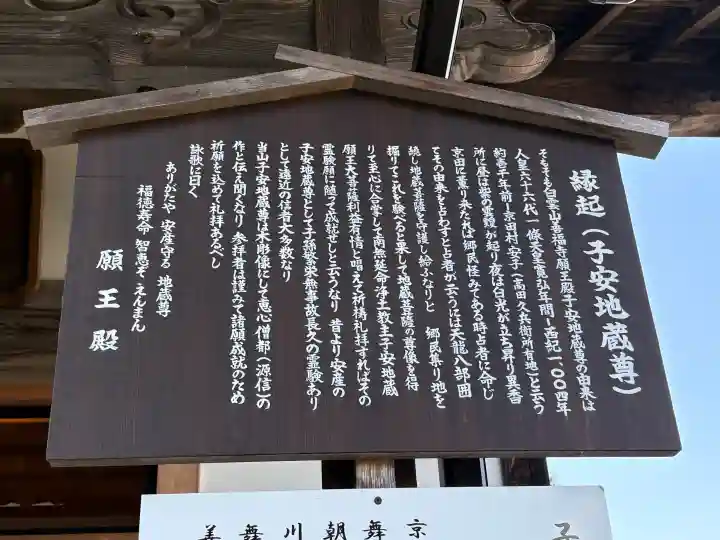 縁起(子安地蔵尊)
そもそも白雲山善福寺願王殿子安地蔵尊の由来は
人皇六十六代一條天皇寛弘年間し西紀一、〇〇四年
約壱千年前し京田村、安子(高田久兵衛所有地)と云う
所に昼は紫の雲靉が起り夜は白光が立ち昇り異香
京田に薫り来たれば郷民怪みてある時占者に命じ
てその由来を占わすと占者が云うには天龍八部囲
繞し地蔵菩薩を守護し給ふなりと 郷民集り地を
掘りてこれを験べると果して地蔵菩薩の尊像を得
りて至心に合掌して南無延命浄土教主子安地蔵
願王大菩薩利益有情と唱えて祈梼礼拝すればその
霊験願に随って成就せしと云うなり 昔より安産の
子安地蔵尊として子孫繁栄無事故長久の霊験あり
として遠近の信者大多数なり
当山子安地蔵尊は木彫像にして恵心僧都(源信)の
作と伝え聞くなり 参拝者は謹みて諸願成就のため
祈願を込めて礼拝あるべし
詠歌に曰く
ありがたや 安産守る 地蔵尊
福徳寿命 智恵ぞえんまん
願王殿
子
京
舞
朝
川
舞
善